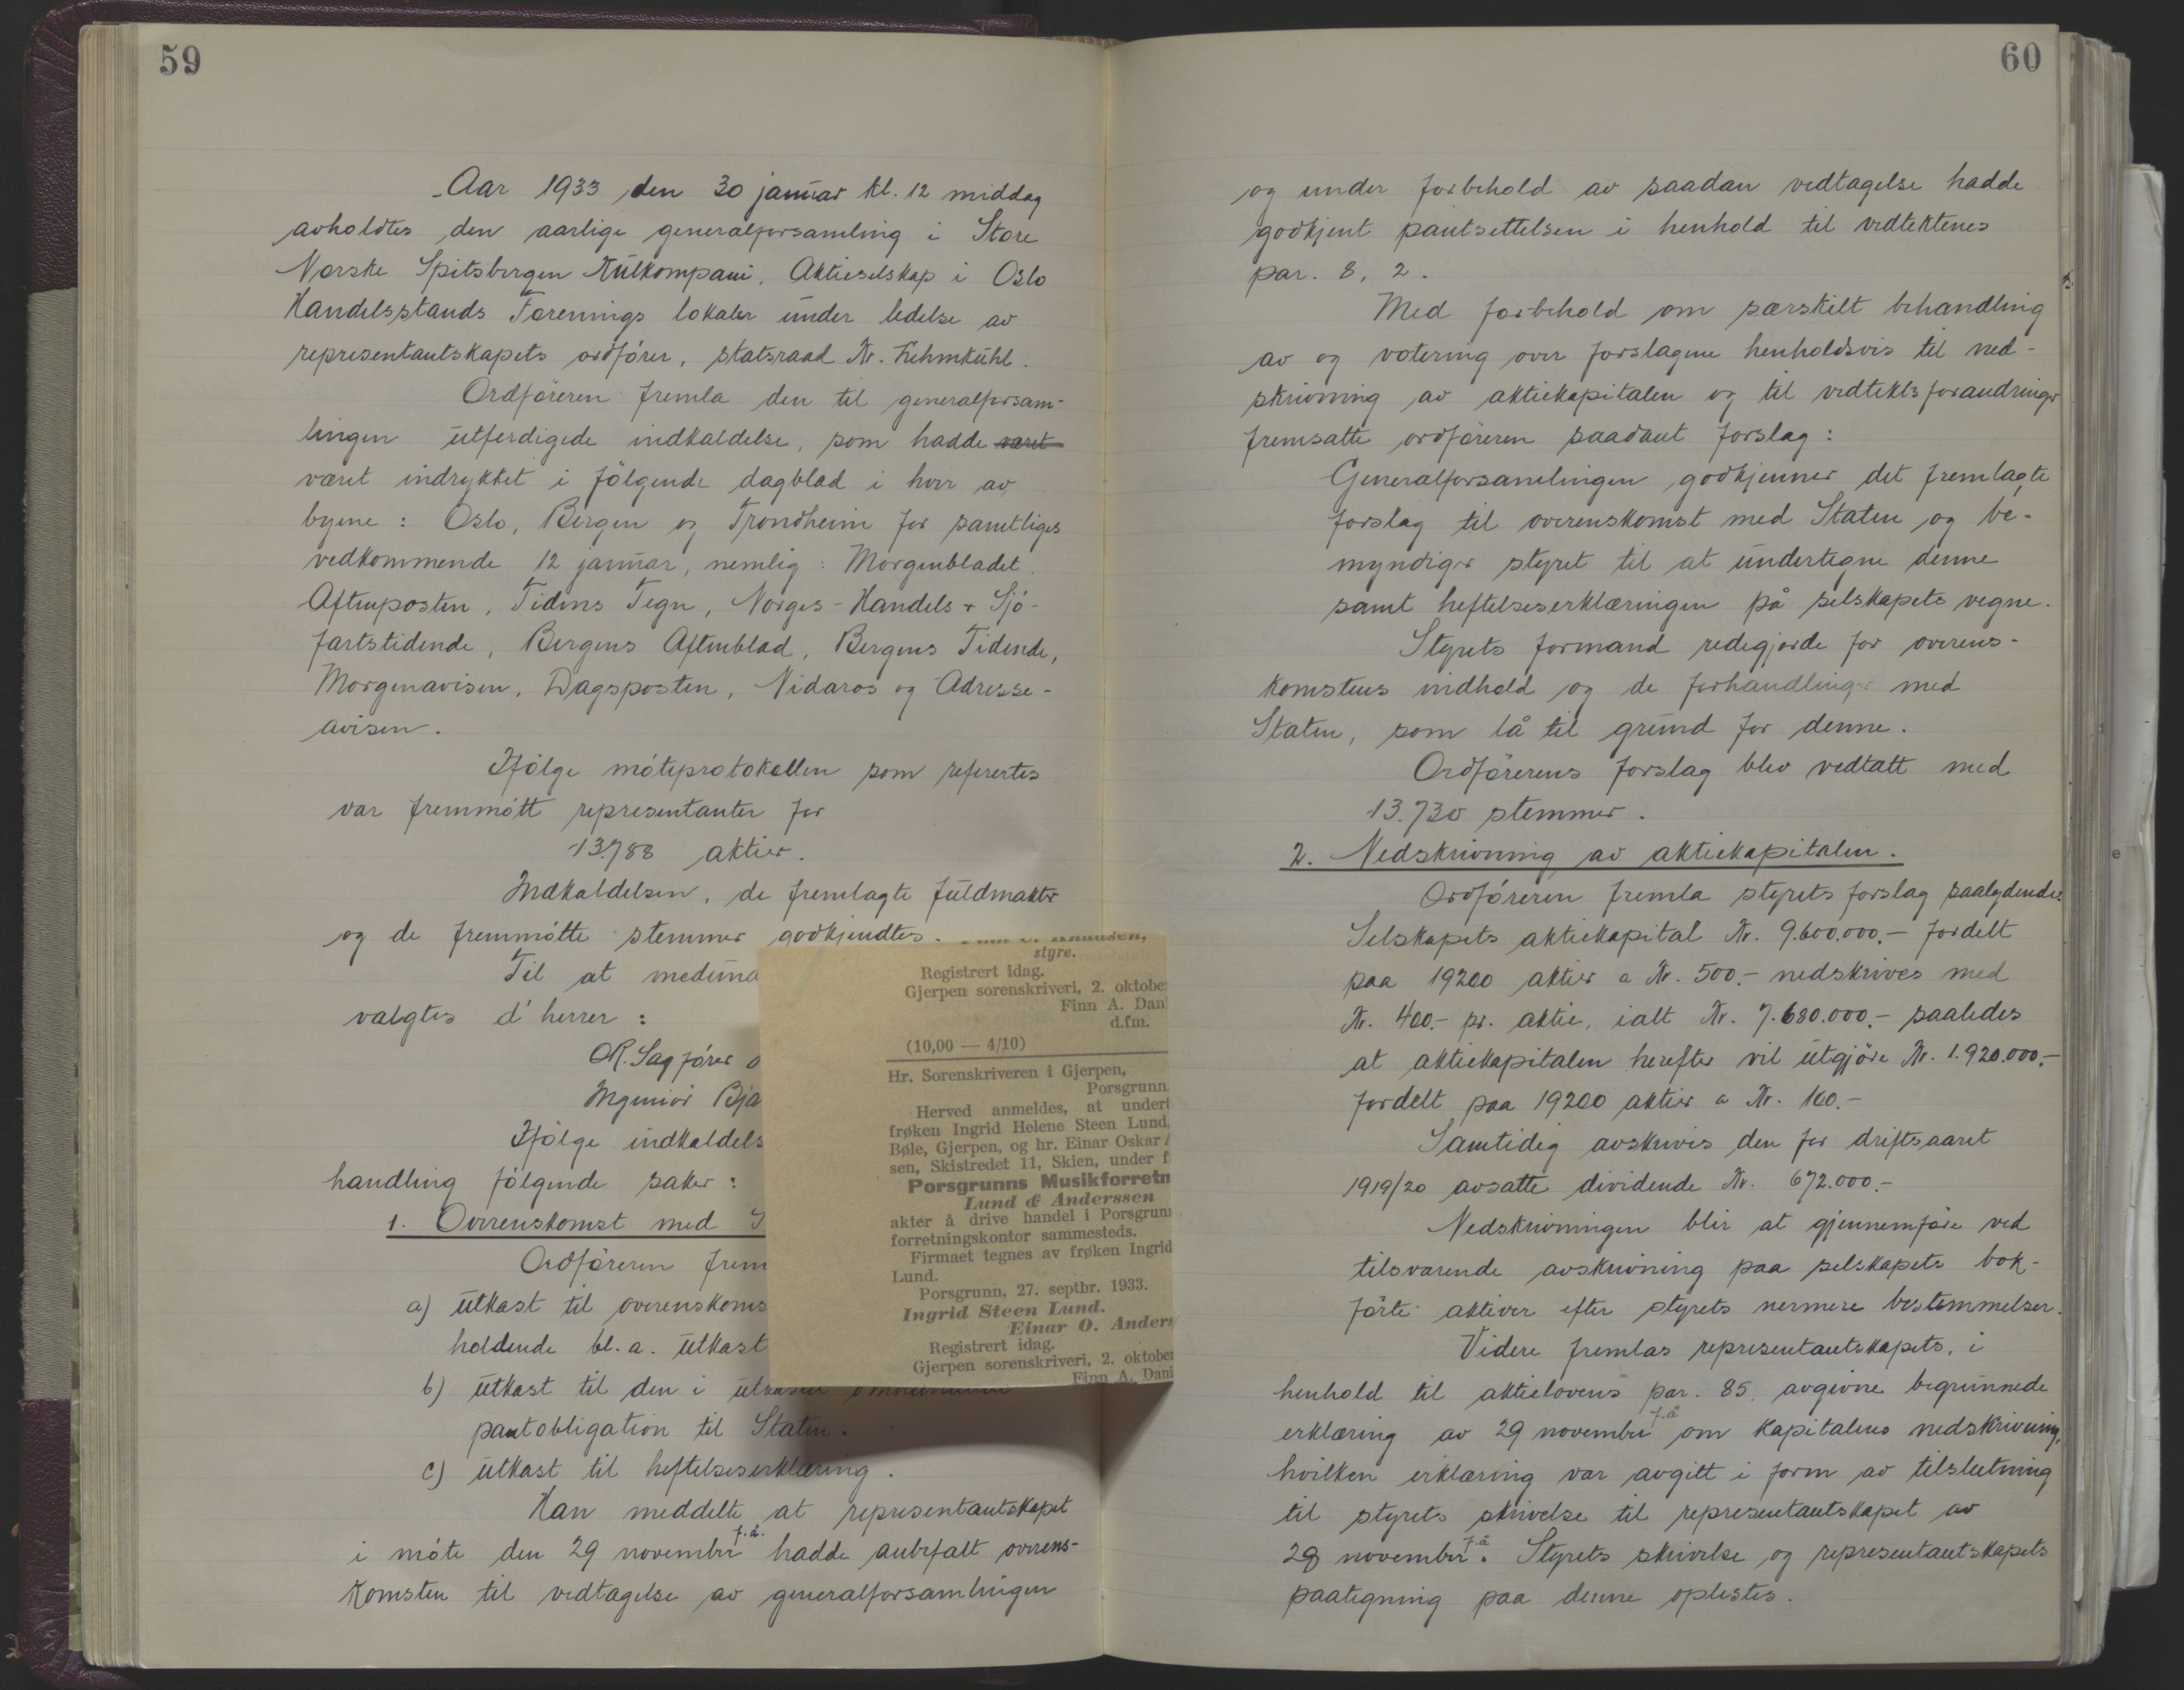 59
Aar 1933 den 30 januar kl. 12 middag
avholdtes den aarlige generalforsamling i Store
Norske Spitsbergen Kulkompani, Aktieselskap i Oslo
Handelsstands Forenings lokaler under ledelse av
representantskapets ordfører, statsraad Kr. Lehmkuhl.
Ordføreren fremla den til generalforsam-
lingen utferdigede indkaldelse, som hadde været
været indrykket i følgende dagblad i hver av
byene: Oslo, Bergen og Trondheim for samtliges
vedkommende 12 januar, nemlig: Morgenbladet.
Aftenposten, Tidens Tegn, Norges-Handels & Sjø-
fartstidende, Bergens Aftenblad, Bergens Tidende,
Morgenavisen, Dagsposten, Nidaros og Adresse-
avisen.
Ifølge møteprotokollen som refereres
var fremmøtt representanter for
13.788 aktier.
Indkaldelsen, de fremlagte fuldmakter
og de fremmøtte stemmer godkjendtes.
Til at medund
valgtes d'herrer:
O.R. Sagfører
Ingeniør Bja
Ifølge indkaldels
handling følgende saker:
1. Overenskomst med S
Ordføreren frem
a) utkast til overenskoms
holdende bl.a. utkast
b) utkast til den i utkastet
pantobligation til Staten.
c) utkast til heftelseserklæring.
Han meddelte at representantskapet
i møte den 29 november f.å. hadde anbefalt overens-
komsten til vedtagelse av generalforsamlingen
styre.
Registrert idag.
Gjerpen sorenskriveri, 2. oktober
Finn A. Dan
d.fm.
(10,00 — 4/10)
Hr. Sorenskriveren i Gjerpen,
Porsgrunn
Herved anmeldes, at undert
frøken Ingrid Helene Steen Lund,
Bøle, Gjerpen, og hr. Einar Oskar A
sen, Skistredet 11, Skien, under f
Porsgrunns Musikforretn
Lund & Anderssen
akter å drive handel i Porsgrunn
forretningskontor sammesteds.
Firmaet tegnes av frøken Ingrid
Lund.
Porsgrunn, 27. septbr. 1933.
Ingrid Steen Lund.
Einar O. Anders
Registrert idag.
Gjerpen sorenskriveri, 2. oktober
Finn A. Dani
60
og under forbehold av saadan vedtagelse hadde
godkjent pantsettelsen i henhold til vedtektenes
par. 8, 2.
Med forbehold om særskilt behandling
av og votering over forslagene henholdsvis til ned-
skrivning av aktiekapitalen og til vedtektsforandringer
fremsatte ordføreren saadant forslag:
Generalforsamlingen godkjenner det fremlagte
forslag til overenskomst med Staten og be-
myndiger styret til at undertegne denne
samt heftelseserklæringen på selskapets vegne.
Styrets formand redegjorde for overens-
komstens indhold og de forhandlinger med
Staten, som lå til grund for denne.
Ordførerens forslag blev vedtatt med
13.730 stemmer.
2. Nedskrivning av aktiekapitalen.
Ordføreren fremla styrets forslag saalydende:
Selskapets aktiekapital Kr. 9.600.000.- fordelt
paa 19200 aktier a Kr. 500.- nedskrives med
Kr. 400.- pr. aktie, ialt Kr. 7.680.000.- saaledes
at aktiekapitalen herefter vil utgjøre Kr. 1.920.000.-
fordelt paa 19200 aktier a Kr. 100.-
Samtidig avskrives den for driftsaaret
1919/20 avsatte dividende Kr. 672.000.-
Nedskrivningen blir at gjennemføre ved
tilsvarende avskrivning paa selskapets bok-
førte aktiver efter styrets nermere bestemmelser.
Videre fremlas representantskapets, i
henhold til aktielovens par. 85, avgivne begrunnede
erklæring av 29 november f.å om kapitalens nedskrivning,
hvilken erklæring var avgitt i form av tilslutning
til styrets skrivelse til representantskapet av
29 november f.å. Styrets skrivelse og representantskapets
paategning paa denne oplestes.